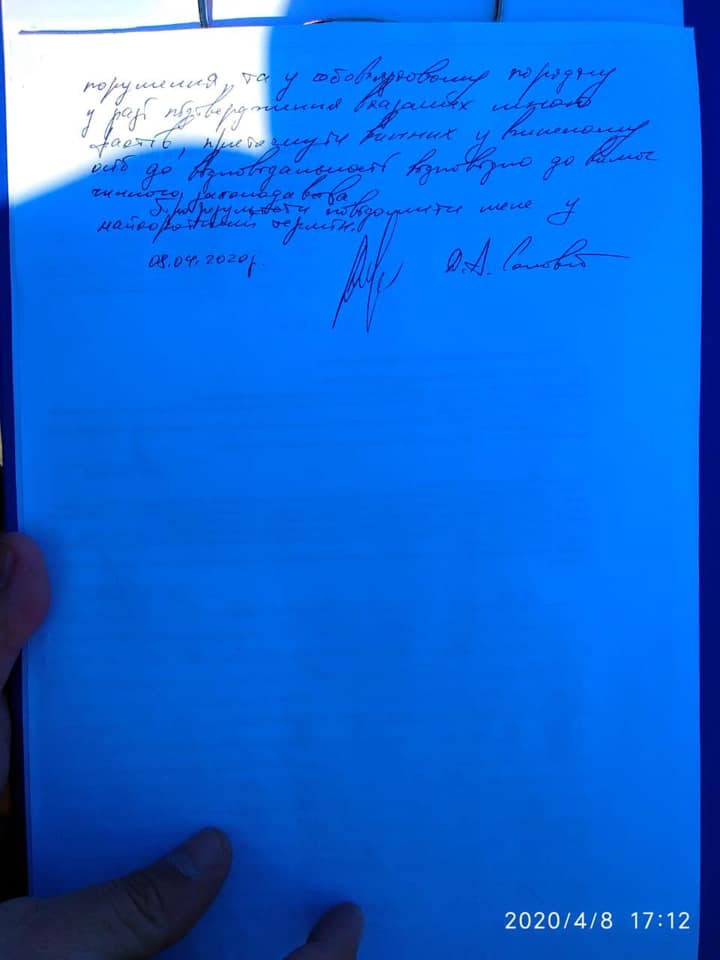 порушення, та у обов'язковому порядку
у разі підтвердження вказаних мною
фактів, притягнути винних у вчиненому
осіб до відповідальності відповідно до вимог
чинного законодавства
Про результати повідомити мене у
найкоротший термін.
08.04.2020р. Д.А.
2020/4/8 17:12